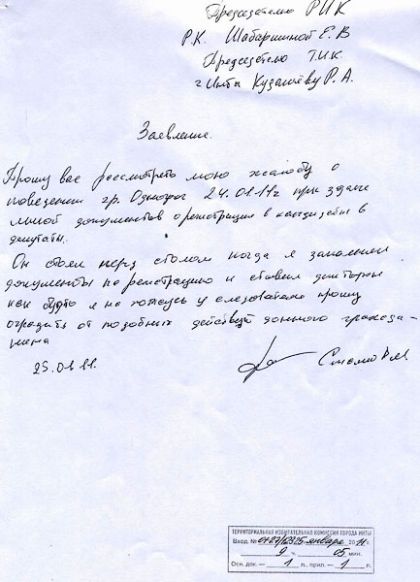 Председателю РИК
Р.К. Шабаршиной Е.В
Председателю Т.И.К.
г Инты Кузашёву Р.А.
Заявление.
Прошу вас рассмотреть мою жалобу о
поведении гр. Одногрог 24.01.11г при здаче
мной документов о регистрации в кандидаты в
депутаты.
Он стоял перед столом когда я заполнял
документы на регистрацию и ставил
как будто я нахожусь у следователя прошу
оградить от подобных действий данного гражда-
нина
25.01.11.
ТЕРРИТОРИАЛЬНАЯ ИЗБИРАТЕЛЬНАЯ КОМИССИЯ ГОРОДА ИНТЫ
Вход. № 25 января 2011г.
9 ч. 05 мин.
Осн. док. — 1 л. прил. — 1 л.